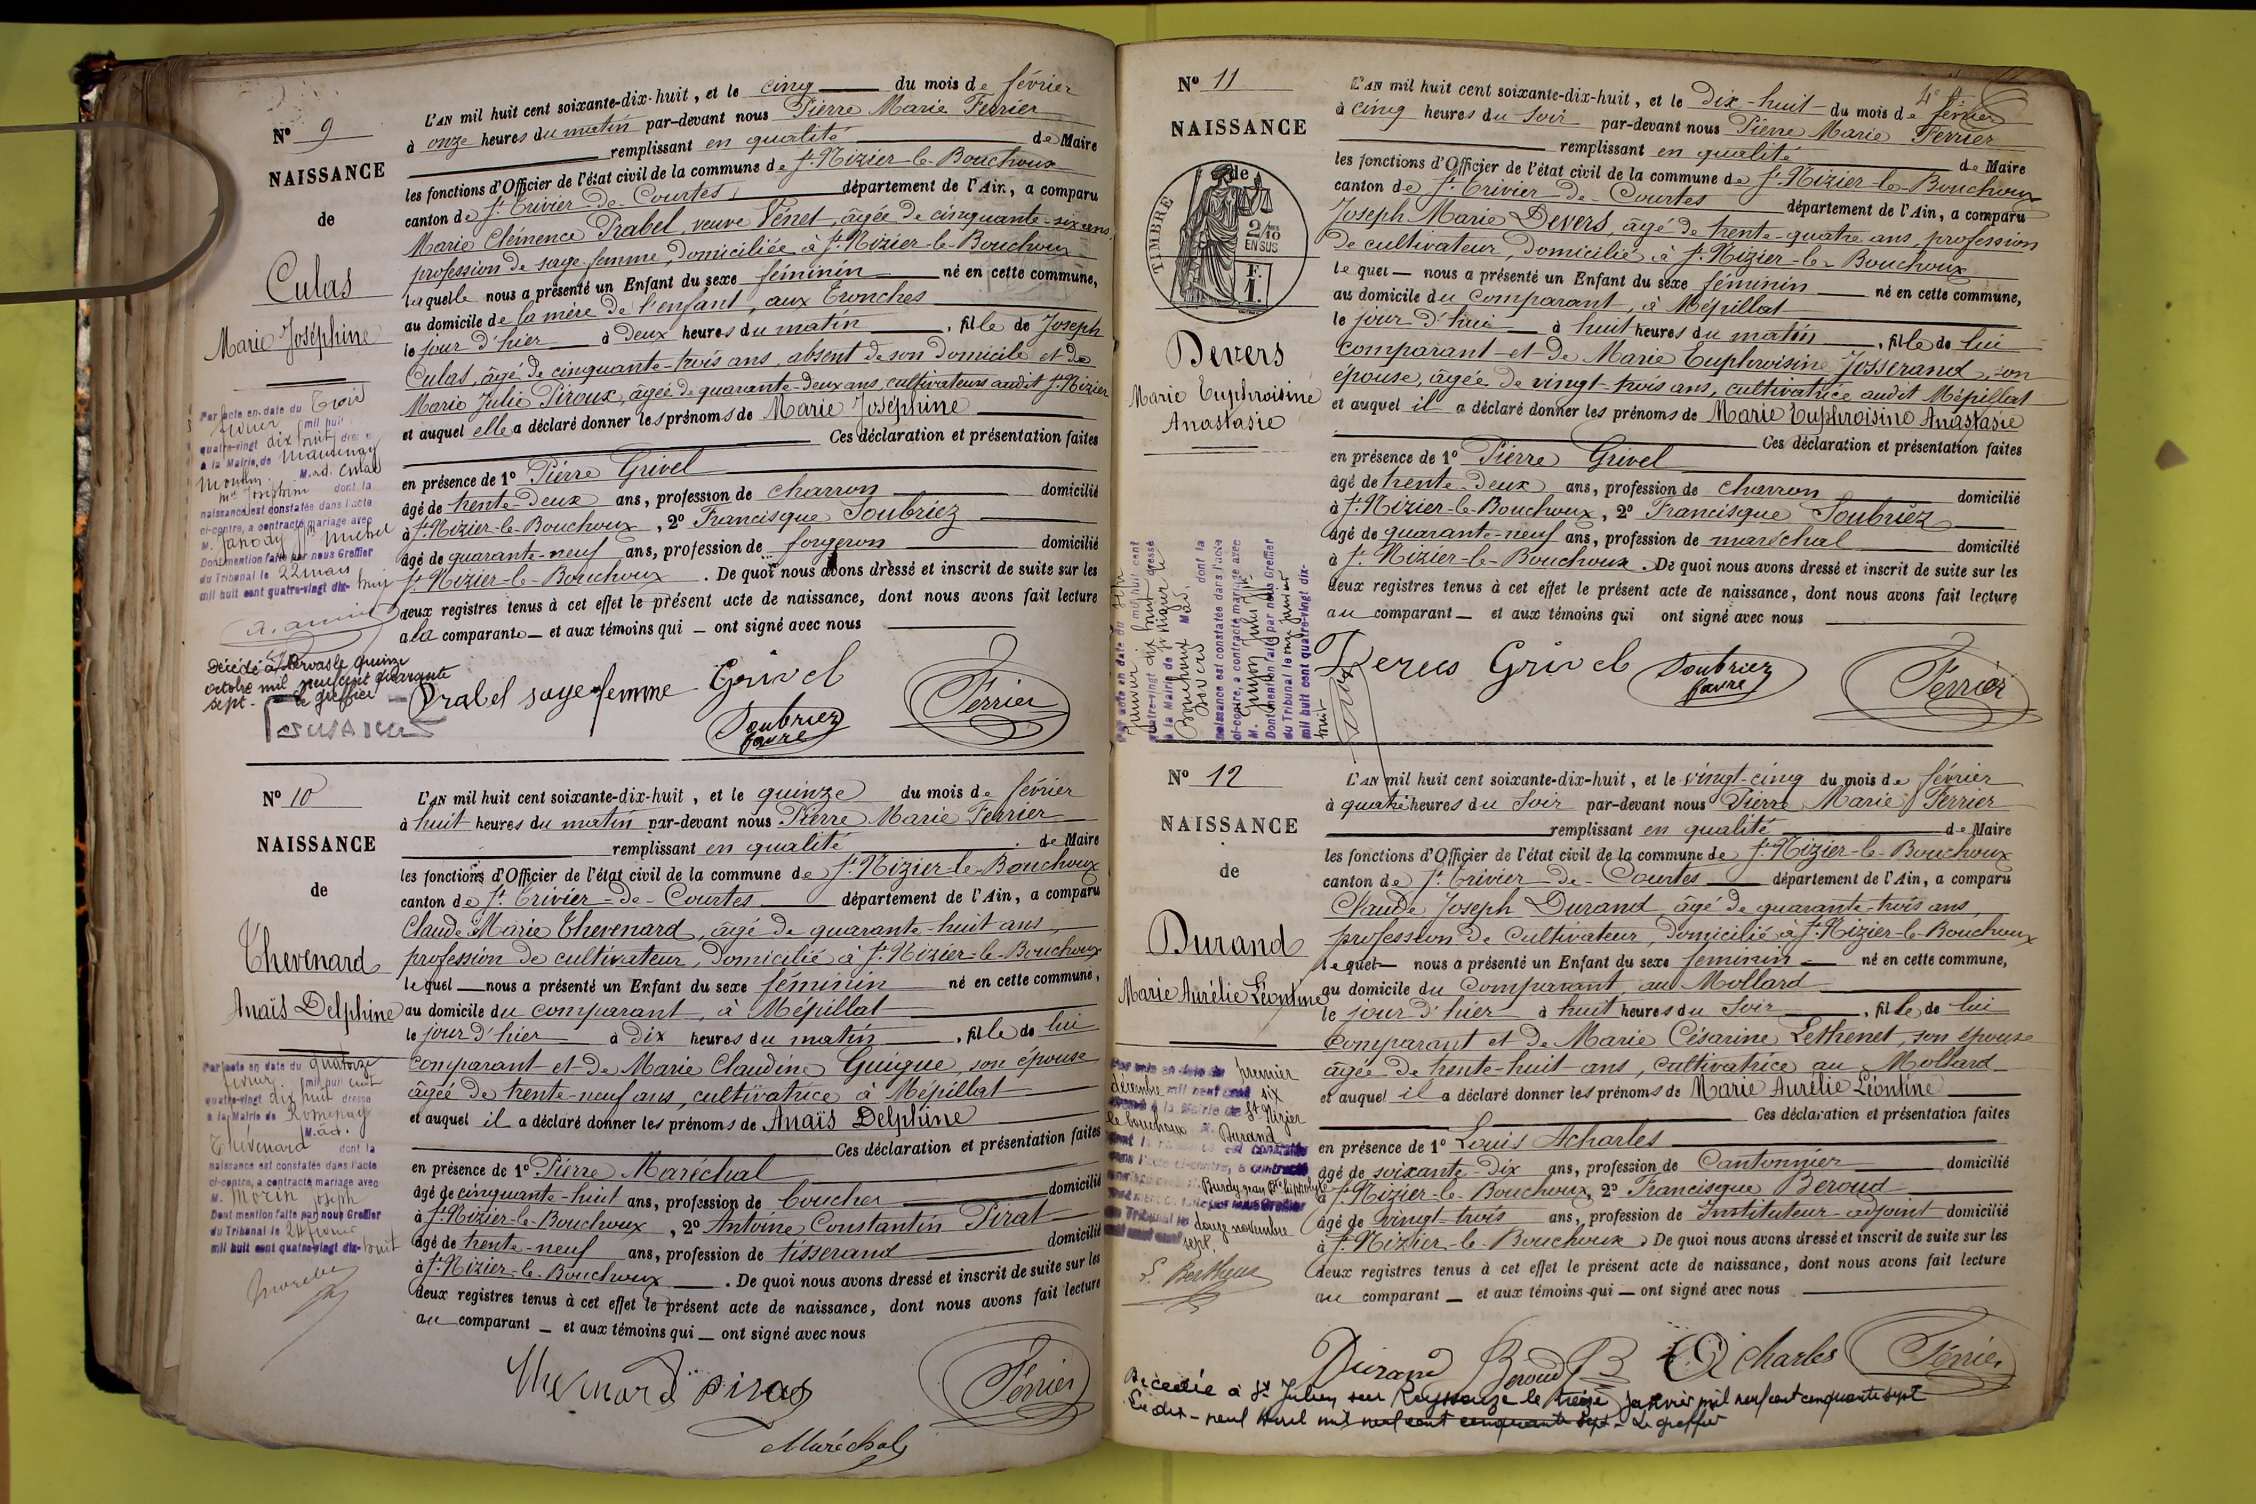 N° 9
NAISSANCE
de
Culas
Marie Joséphine
L'AN mil huit cent soixante-dix-huit, et le cinq du mois de février
à onze heures du matin par-devant nous Pierre Marie Ferrier
remplissant en qualité de Maire
les fonctions d'Officier de l'état civil de la commune de St Nizier-le-Bouchoux
canton de St Trivier-de-Courtes, département de l'Ain, a comparu
Marie Clémence Prabel, veuve Vénet, âgée de cinquante-six ans,
profession de sage-femme, domiciliée à St Nizier-le-Bouchoux
laquelle nous a présenté un Enfant du sexe féminin né en cette commune,
au domicile de la mère de l'enfant, aux Tronches
le jour d'hier à deux heures du matin, fille de Joseph
Culas, âgé de cinquante-trois ans, absent de son domicile et de
Marie Julie Piroux, âgée de quarante-deux ans, cultivateurs audit St Nizier
et auquel elle a déclaré donner les prénoms de Marie Joséphine
Ces déclaration et présentation faites
en présence de 1° Pierre Grivel
âgé de trente-deux ans, profession de charron domicilié
à St Nizier-le-Bouchoux, 2° Francisque Soubriez
âgé de quarante-neuf ans, profession de forgeron domicilié
St Nizier-le-Bouchoux. De quoi nous avons dressé et inscrit de suite sur les
deux registres tenus à cet effet le présent acte de naissance, dont nous avons fait lecture
a la comparante et aux témoins qui ont signé avec nous
Prabel sage femme Grivel
Soubriez favre
Ferrier
Par acte en date du trois
février mil huit
quatre-vingt dix huit dressé
à la Mairie de
M.
Joséphine dont la
naissance est constatée dans l'acte
ci-contre, a contracté mariage avec
M. Janody Michel
Dont mention faite par nous Greffier
du Tribunal le 22 mars
mil huit cent quatre-vingt dix-huit
Décédé à quinze
octobre mil neuf cent quarante
sept. le greffier
N° 10
NAISSANCE
de
Thevenard
Anaïs Delphine
L'AN mil huit cent soixante-dix-huit, et le quinze du mois de février
à huit heures du matin par-devant nous Pierre Marie Ferrier
remplissant en qualité de Maire
les fonctions d'Officier de l'état civil de la commune de St Nizier-le-Bouchoux
canton de St Trivier-de-Courtes département de l'Ain, a comparu
Claude Marie Thevenard, âgé de quarante-huit ans,
profession de cultivateur, domicilié à St Nizier-le-Bouchoux
lequel nous a présenté un Enfant du sexe féminin né en cette commune,
au domicile du comparant, à Mépillat
le jour d'hier à dix heures du matin, fille de lui
comparant et de Marie Claudine Guigue, son épouse
âgée de trente-neuf ans, cultivatrice à Mépillat
et auquel il a déclaré donner les prénoms de Anaïs Delphine
Ces déclaration et présentation faites
en présence de 1° Pierre Maréchal
âgé de cinquante-huit ans, profession de boucher domicilié
à St Nizier-le-Bouchoux, 2° Antoine Constantin Pirat
âgé de trente-neuf ans, profession de tisserand domicilié
à St Nizier-le-Bouchoux. De quoi nous avons dressé et inscrit de suite sur les
deux registres tenus à cet effet le présent acte de naissance, dont nous avons fait lecture
au comparant et aux témoins qui ont signé avec nous
Thevenard Pirat
Maréchal
Ferrier
Par acte en date du quatorze
février mil huit cent
quatre-vingt dix huit dressé
à la Mairie de Romenay
M.
Thévenard dont la
naissance est constatée dans l'acte
ci-contre, a contracté mariage avec
M. Morin Joseph
Dont mention faite par nous Greffier
du Tribunal le 24 février
mil huit cent quatre-vingt dix-huit
N° 11
NAISSANCE
de
TIMBRE
2/10
EN SUS
F.
1.
Devers
Marie Euphroisine
Anastasie
L'AN mil huit cent soixante-dix-huit, et le dix-huit du mois de février
à cinq heures du soir par-devant nous Pierre Marie Ferrier
remplissant en qualité de Maire
les fonctions d'Officier de l'état civil de la commune de St Nizier-le-Bouchoux
canton de St Trivier-de-Courtes département de l'Ain, a comparu
Joseph Marie Devers, âgé de trente-quatre ans, profession
de cultivateur, domicilié à St Nizier-le-Bouchoux
lequel nous a présenté un Enfant du sexe féminin né en cette commune,
au domicile du comparant, à Mépillat
le jour d'hui à huit heures du matin, fille de lui
comparant et de Marie Euphroisine Josserand, son
épouse, âgée de vingt-trois ans, cultivatrice audit Mépillat
et auquel il a déclaré donner les prénoms de Marie Euphroisine Anastasie
Ces déclaration et présentation faites
en présence de 1° Pierre Grivel
âgé de trente-deux ans, profession de charron domicilié
à St Nizier-le-Bouchoux, 2° Francisque Soubriez
âgé de quarante-neuf ans, profession de maréchal domicilié
à St Nizier-le-Bouchoux. De quoi nous avons dressé et inscrit de suite sur les
deux registres tenus à cet effet le présent acte de naissance, dont nous avons fait lecture
au comparant et aux témoins qui ont signé avec nous
Devers Grivel Soubriez favre
Ferrier
Par acte en date du
janvier mil huit cent
quatre-vingt dix huit dressé
à la Mairie de St Nizier le
Bouchoux M
Devers dont la
naissance est constatée dans l'acte
ci-contre, a contracté mariage avec
M. Guyon
Dont mention faite par nous Greffier
du Tribunal le
mil huit cent quatre-vingt dix-
huit
N° 12
NAISSANCE
de
Durand
Marie Aurélie Léontine
L'AN mil huit cent soixante-dix-huit, et le vingt-cinq du mois de février
à quatre heures du soir par-devant nous Pierre Marie Ferrier
remplissant en qualité de Maire
les fonctions d'Officier de l'état civil de la commune de St Nizier-le-Bouchoux
canton de St Trivier-de-Courtes département de l'Ain, a comparu
Claude Joseph Durand âgé de quarante-trois ans,
profession de cultivateur, domicilié à St Nizier-le-Bouchoux
lequel nous a présenté un Enfant du sexe féminin né en cette commune,
au domicile du comparant, au Mollard
le jour d'hier à huit heures du soir, fille de lui
comparant et de Marie Césarine Lethenet, son épouse
âgée de trente-huit ans, cultivatrice au Mollard
et auquel il a déclaré donner les prénoms de Marie Aurélie Léontine
Ces déclaration et présentation faites
en présence de 1° Louis Acharles
âgé de soixante-dix ans, profession de Cantonnier domicilié
à St Nizier-le-Bouchoux, 2° Francisque Beroud
âgé de vingt-trois ans, profession de Instituteur-adjoint domicilié
à St Nizier-le-Bouchoux. De quoi nous avons dressé et inscrit de suite sur les
deux registres tenus à cet effet le présent acte de naissance, dont nous avons fait lecture
au comparant et aux témoins qui ont signé avec nous
Durand Beroud Acharles
Ferrier
Par acte en date du premier
décembre mil neuf cent six
dressé à la Mairie de St Nizier
le bouchoux Durand
dont la naissance est constatée
dans l'acte ci-contre, a contracté
mariage avec Burdy Jean
du Tribunal le douze novembre
sept.
Décédée à St Julien sur Reyssouze le treize janvier mil neuf cent cinquante sept
Le dix-neuf avril mil neuf cent cinquante sept - Le greffier